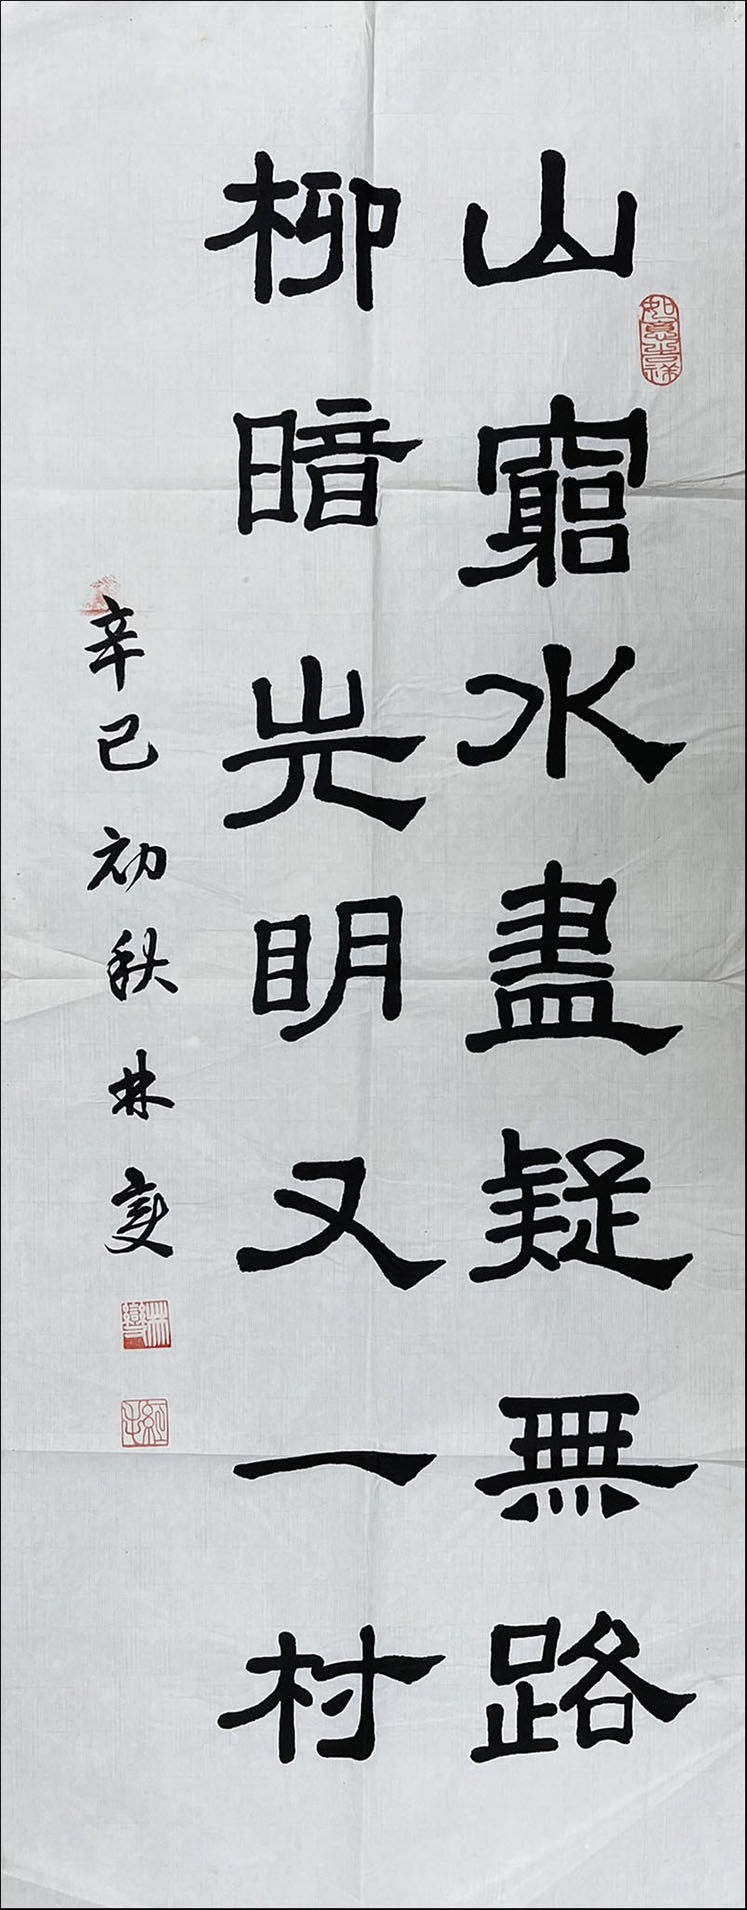 山窮水盡疑無路
如意吉祥
柳暗光明又一村
辛巳初秋林变